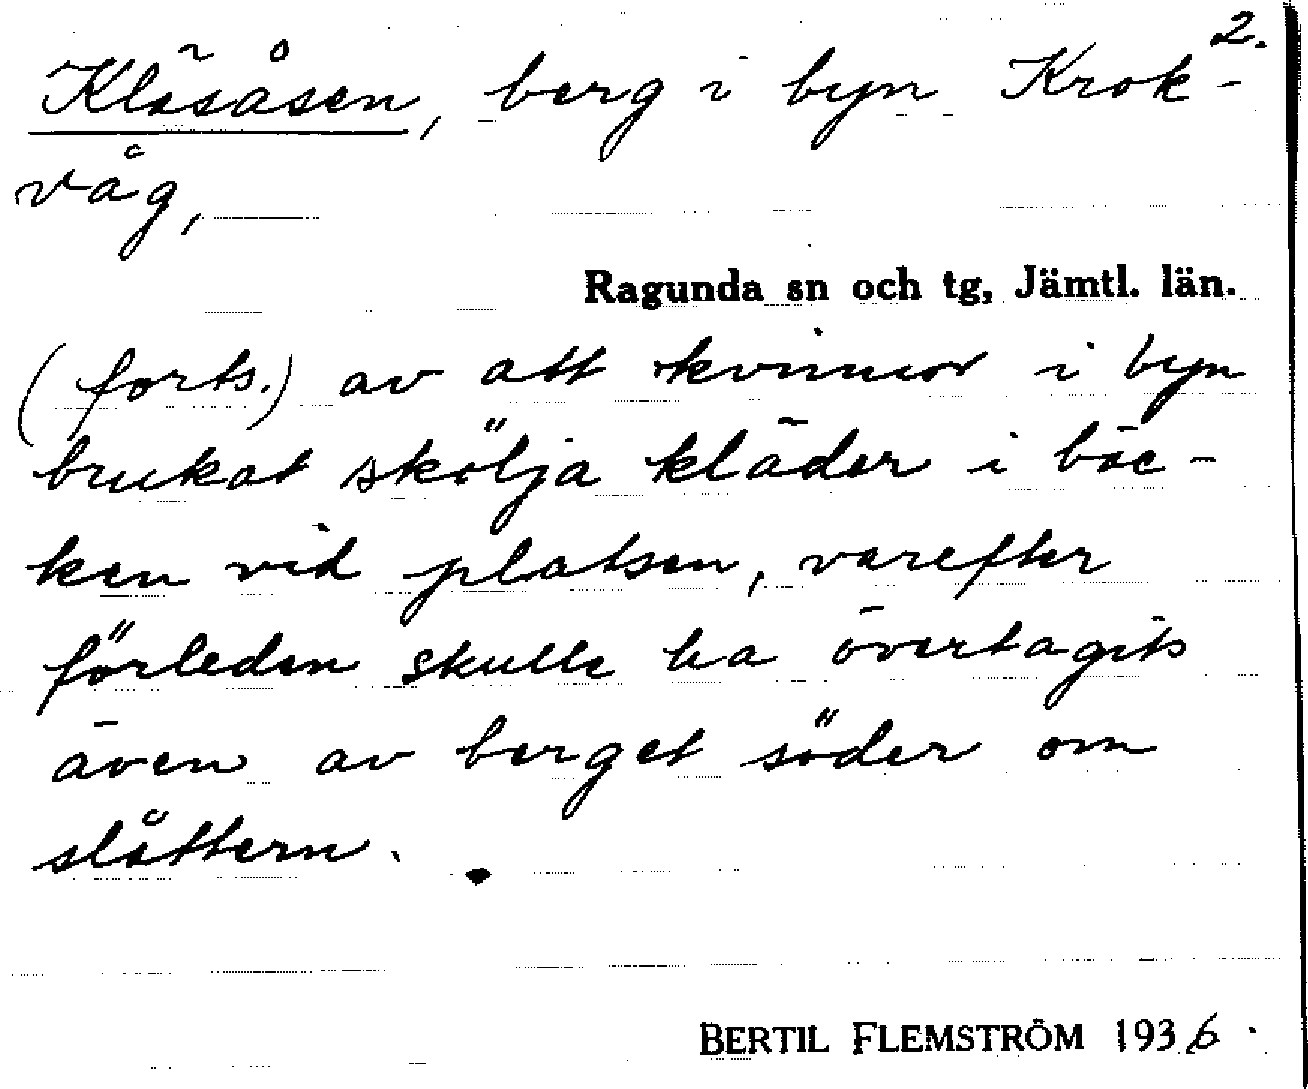 2.
Kläsåsen, berg i byn Krok-
våg,
Ragunda sn och tg, Jämtl. län.
(forts.) av att kvinnor i byn
brukat skölja kläder i bäc-
ken vid platsen, varefter
förleden skulle ha övertagits
även av berget söder om
slåttern.
BERTIL FLEMSTRÖM 1936